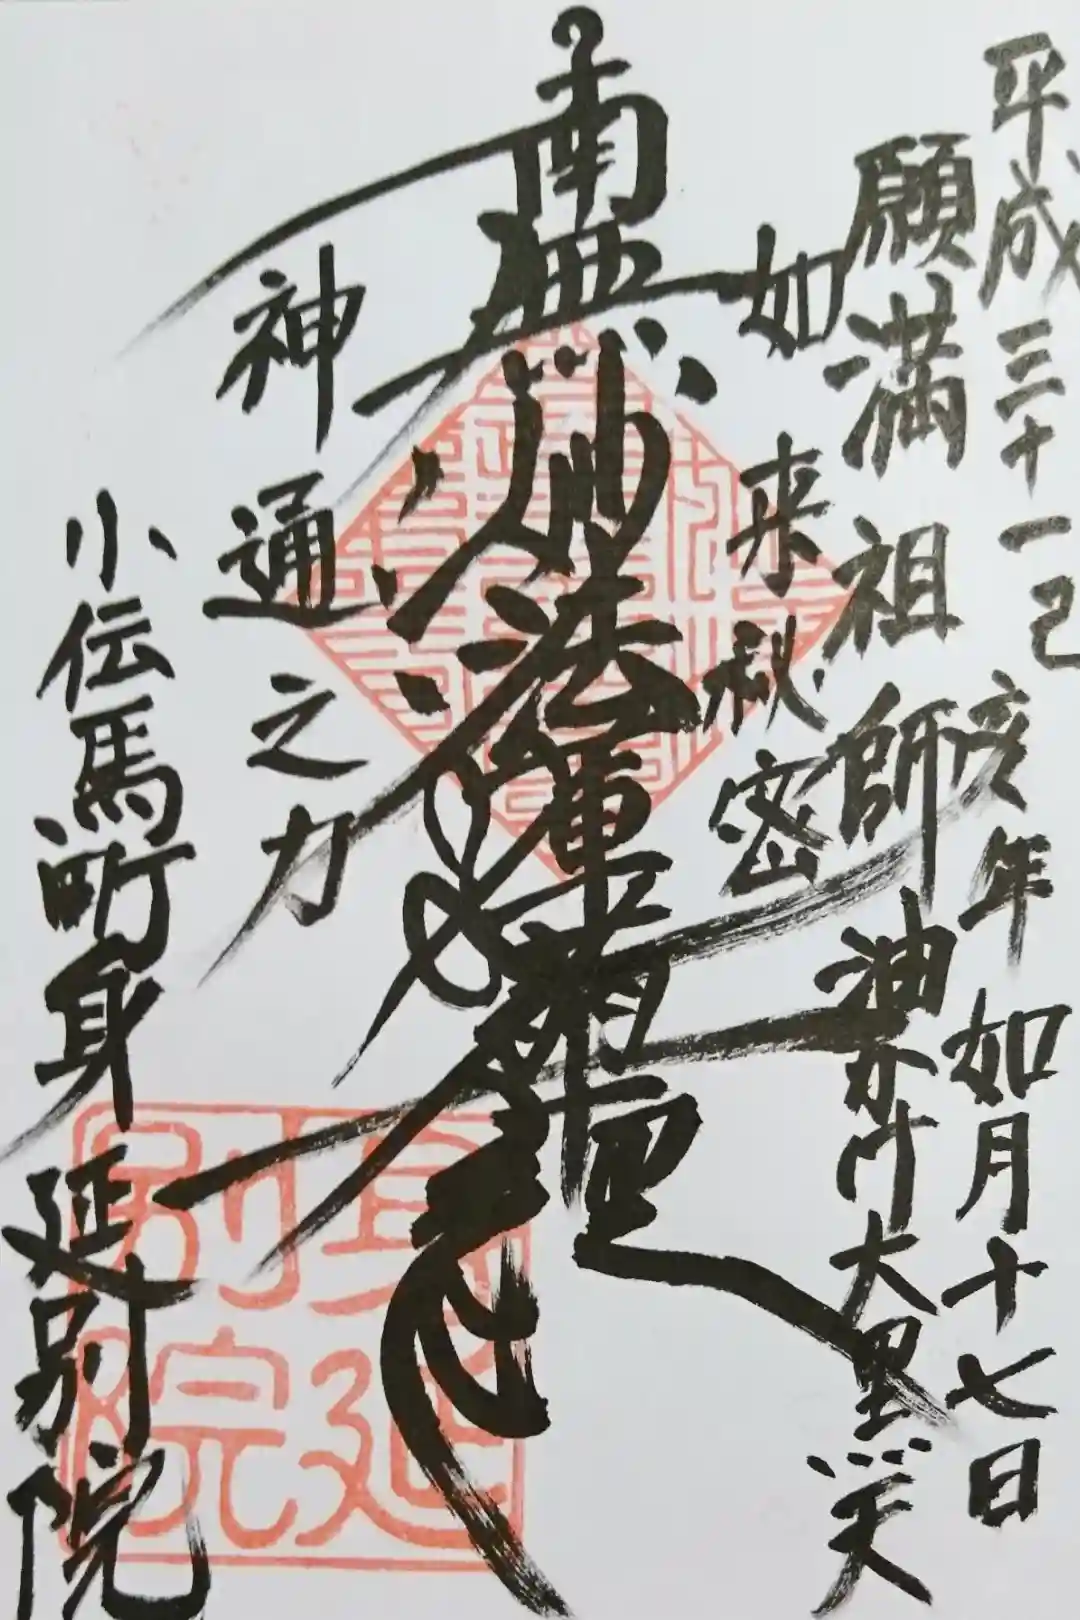 平成三十一己亥年 如月十七日
願満祖師 油かけ大黒天
如来秘密
南無妙法蓮華経
神通之力
小伝馬町身延別院
身延別院